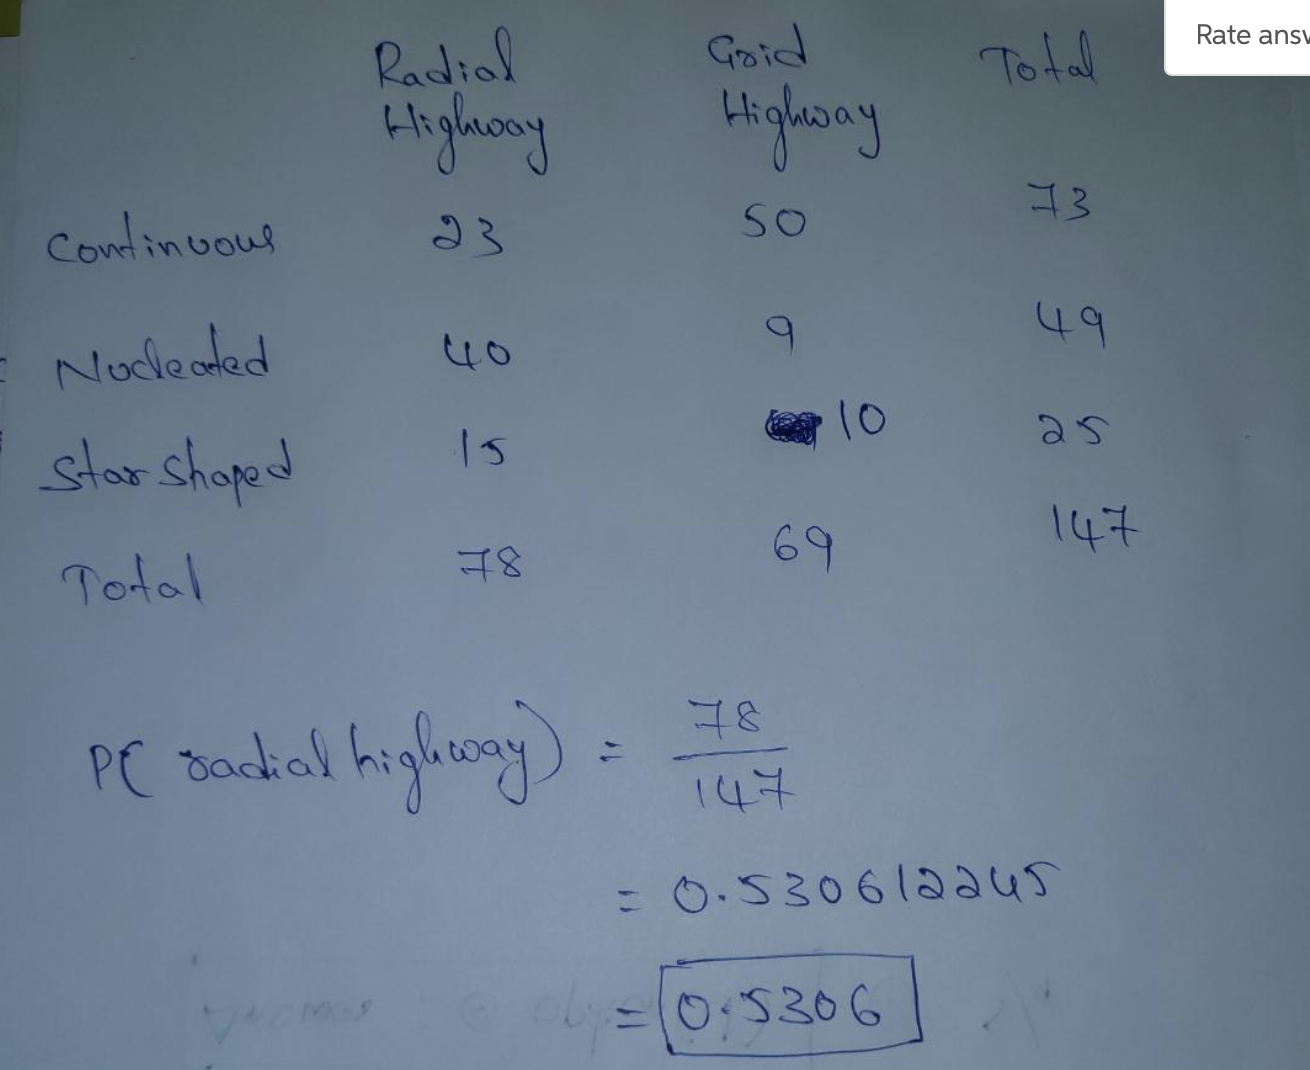 Rate answ
Radial Grid Total
Highway Highway
Continuous 23 50 73
Nucleated 40 9 49
Star Shaped 15 10 25
Total 78 69 147
P( radial highway) = 78
147
= 0.530612245
= 0.5306